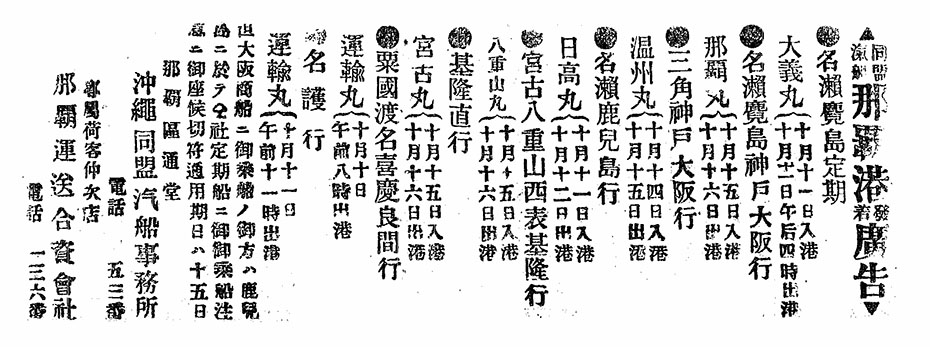 同盟
汽船
那覇港発着広告
●名瀬鹿児島定期
大義丸 十月十一日入港
十月十二日午后四時出港
●名瀬鹿児島神戸大阪行
那覇丸 十月十五日入港
十月十六日出港
●三角神戸大阪行
温州丸 十月十四日入港
十月十五日出港
●名瀬鹿児島行
日高丸 十月十一日入港
十月十二日出港
●宮古八重山西表基隆行
八重山丸 十月十五日入港
十月十六日出港
●基隆直行
宮古丸 十月十五日入港
十月十六日出港
●粟國渡名喜慶良間行
運輸丸 十月十日
午前八時出港
●名護行
運輸丸 十月十一日
午前十一時出港
大阪商船ニ御乗船ノ御方ハ鹿兒
ニ於テ仝社定期船ニ御乗船
ニ御座候切符通用期日ハ十五日
那覇區通堂
沖繩同盟汽船事務所
電話 五三番
荷客仲次店
那覇運送合資會社
電話 一二六番